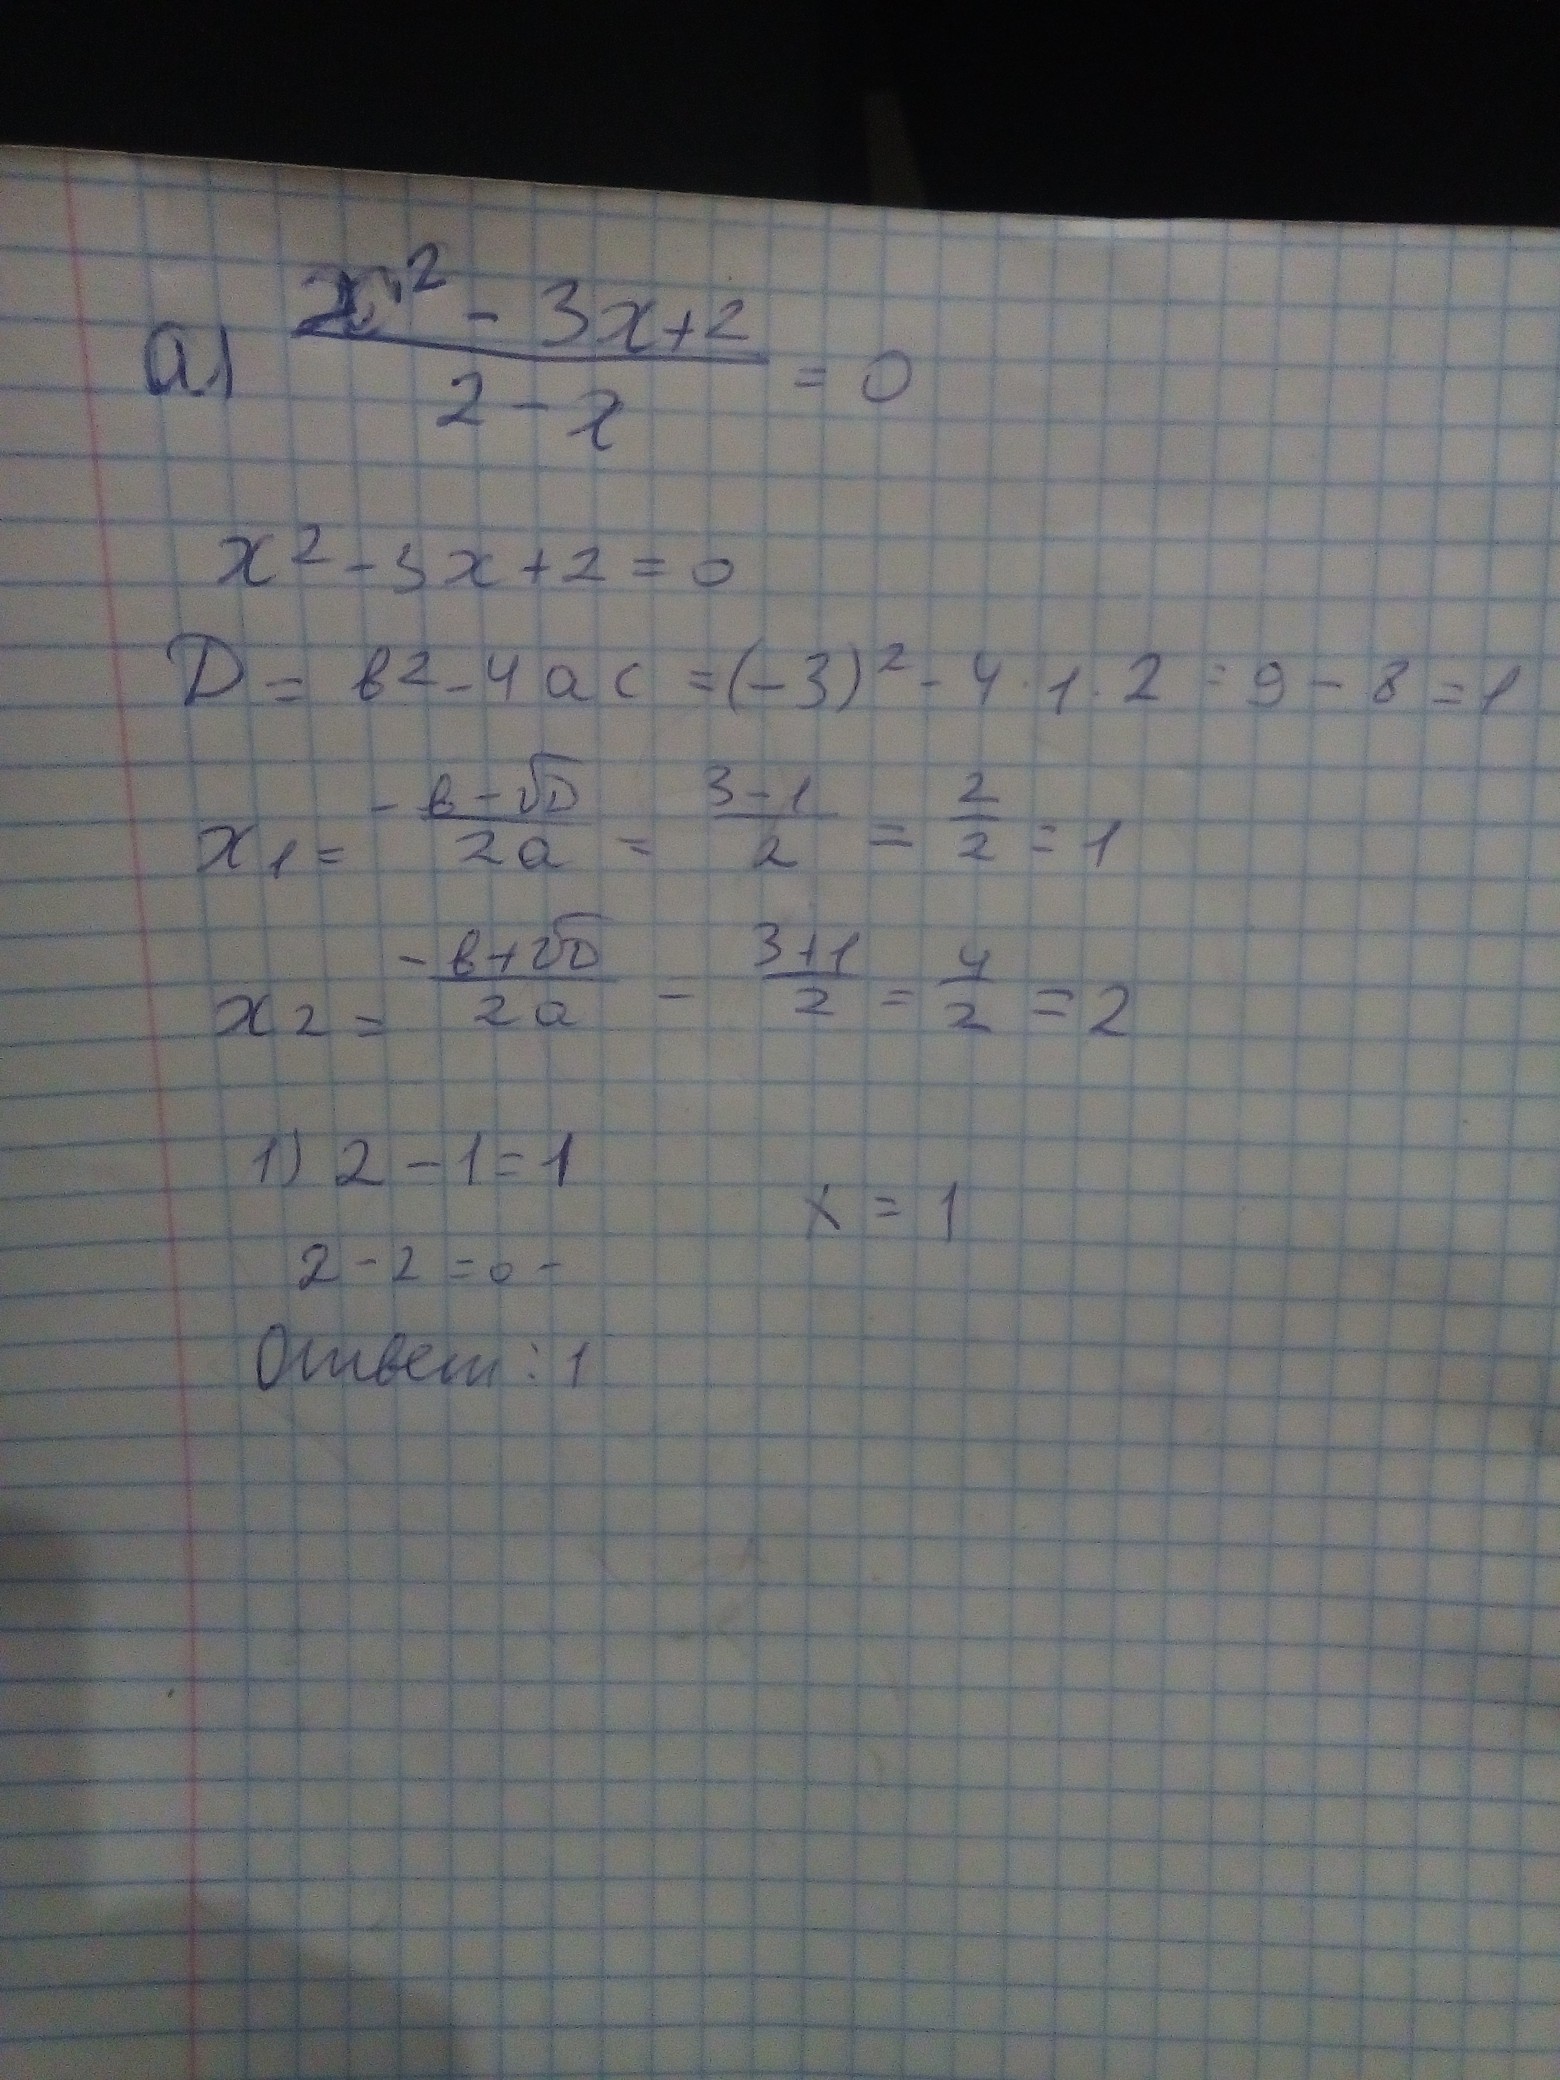 а) (x² - 3x + 2) / (2 - x) = 0
x² - 3x + 2 = 0
D = в² - 4ac = (-3)² - 4 · 1 · 2 = 9 - 8 = 1
x₁ = (-в - √D) / 2a = (3 - 1) / 2 = 2/2 = 1
x₂ = (-в + √D) / 2a = (3 + 1) / 2 = 4/2 = 2
1) 2 - 1 = 1
x = 1
2 - 2 = 0 -
Ответ: 1